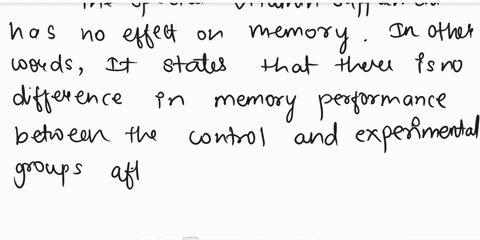 has no effect on memory. In other
words, It states that there is no
difference in memory performance
between the control and experimental
groups aft